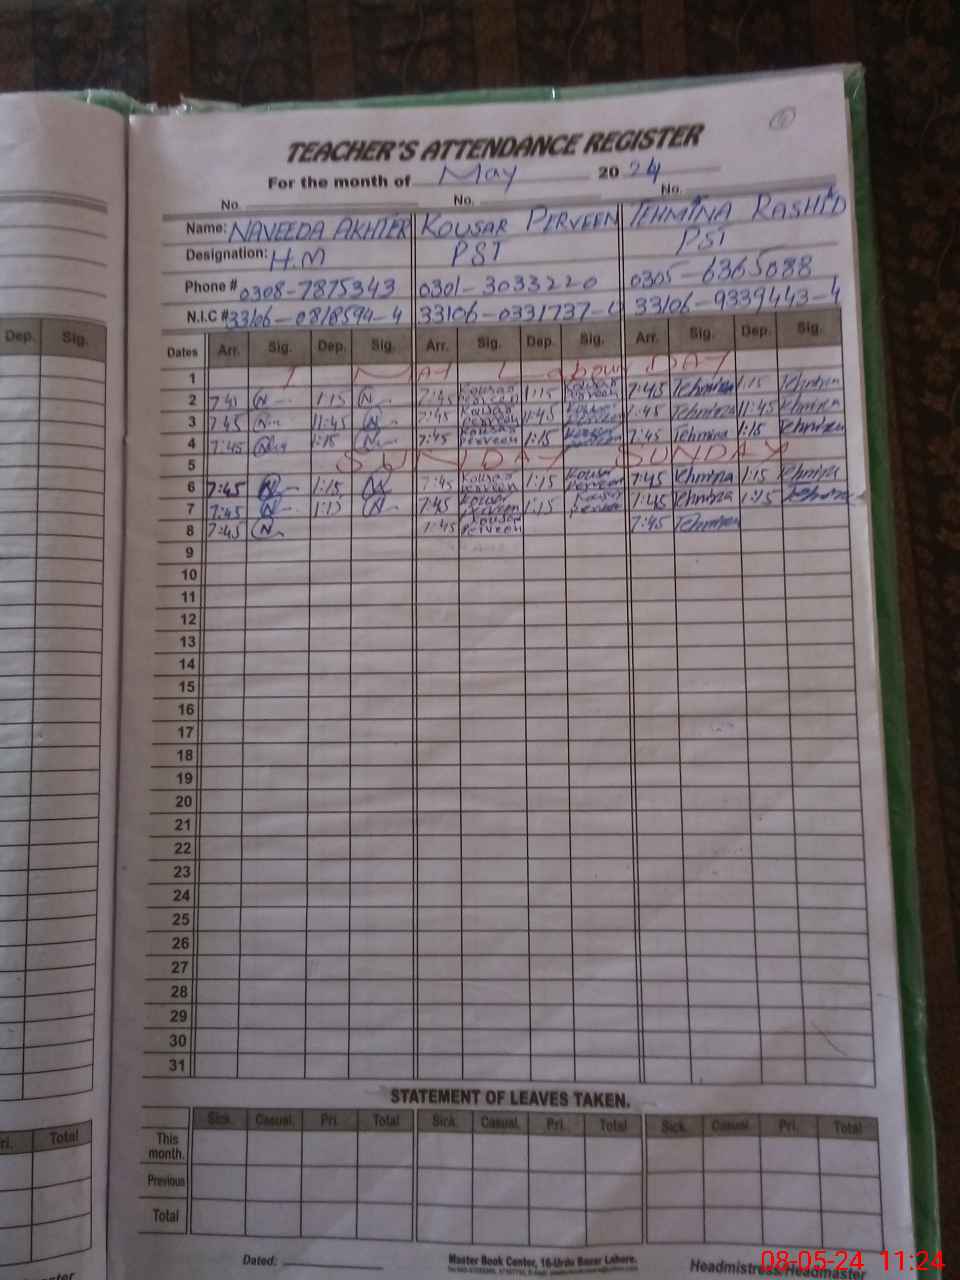 TEACHER'S ATTENDANCE REGISTER
For the month of May 2024
No. No. No.
Name: NAVEEDA AKHTER KOUSAR PERVEEN TEHMINA RASHID
Designation: H.M PST PST
Phone # 0308-7875343 0301-3033220 0305-6365088
N.I.C # 33106-0818594-4 33106-0331737- 33106-9339443-4
Dates Arr. Sig. Dep. Sig. Arr. Sig. Dep. Sig. Arr. Sig. Dep. Sig.
1 1 MAY Labour DAY
2 7:45 N 1:15 N 7:45 Kousar Perveen 1:15 Kousar Perveen 7:45 Tehmina 1:15 Tehmina
3 7:45 N 11:45 N 7:45 Kousar Perveen 11:45 7:45 Tehmina 11:45 Tehmina
4 7:45 N 1:15 N 7:45 Kousar Perveen 1:15 7:45 Tehmina 1:15 Tehmina
5 SUNDAY SUNDAY
6 7:45 N 1:15 N 7:45 Kousar Perveen 1:15 Kousar Perveen 7:45 Tehmina 1:15 Tehmina
7 7:45 N 1:15 N 7:45 Kousar Perveen 1:15 Kousar Perveen 7:45 Tehmina 1:15 Tehmina
8 7:45 N 7:45 Kousar Perveen 7:45 Tehmina
9
10
11
12
13
14
15
16
17
18
19
20
21
22
23
24
25
26
27
28
29
30
31
STATEMENT OF LEAVES TAKEN.
Sick. Casual. Pri. Total Sick. Casual. Pri. Total Sick. Casual. Pri. Total
This month.
Previous
Total
Dated:
Master Book Center, 16-Urdu Bazar Lahore.
Headmistress/Headmaster
Dep. Sig.
Total
08-05-24 11:24